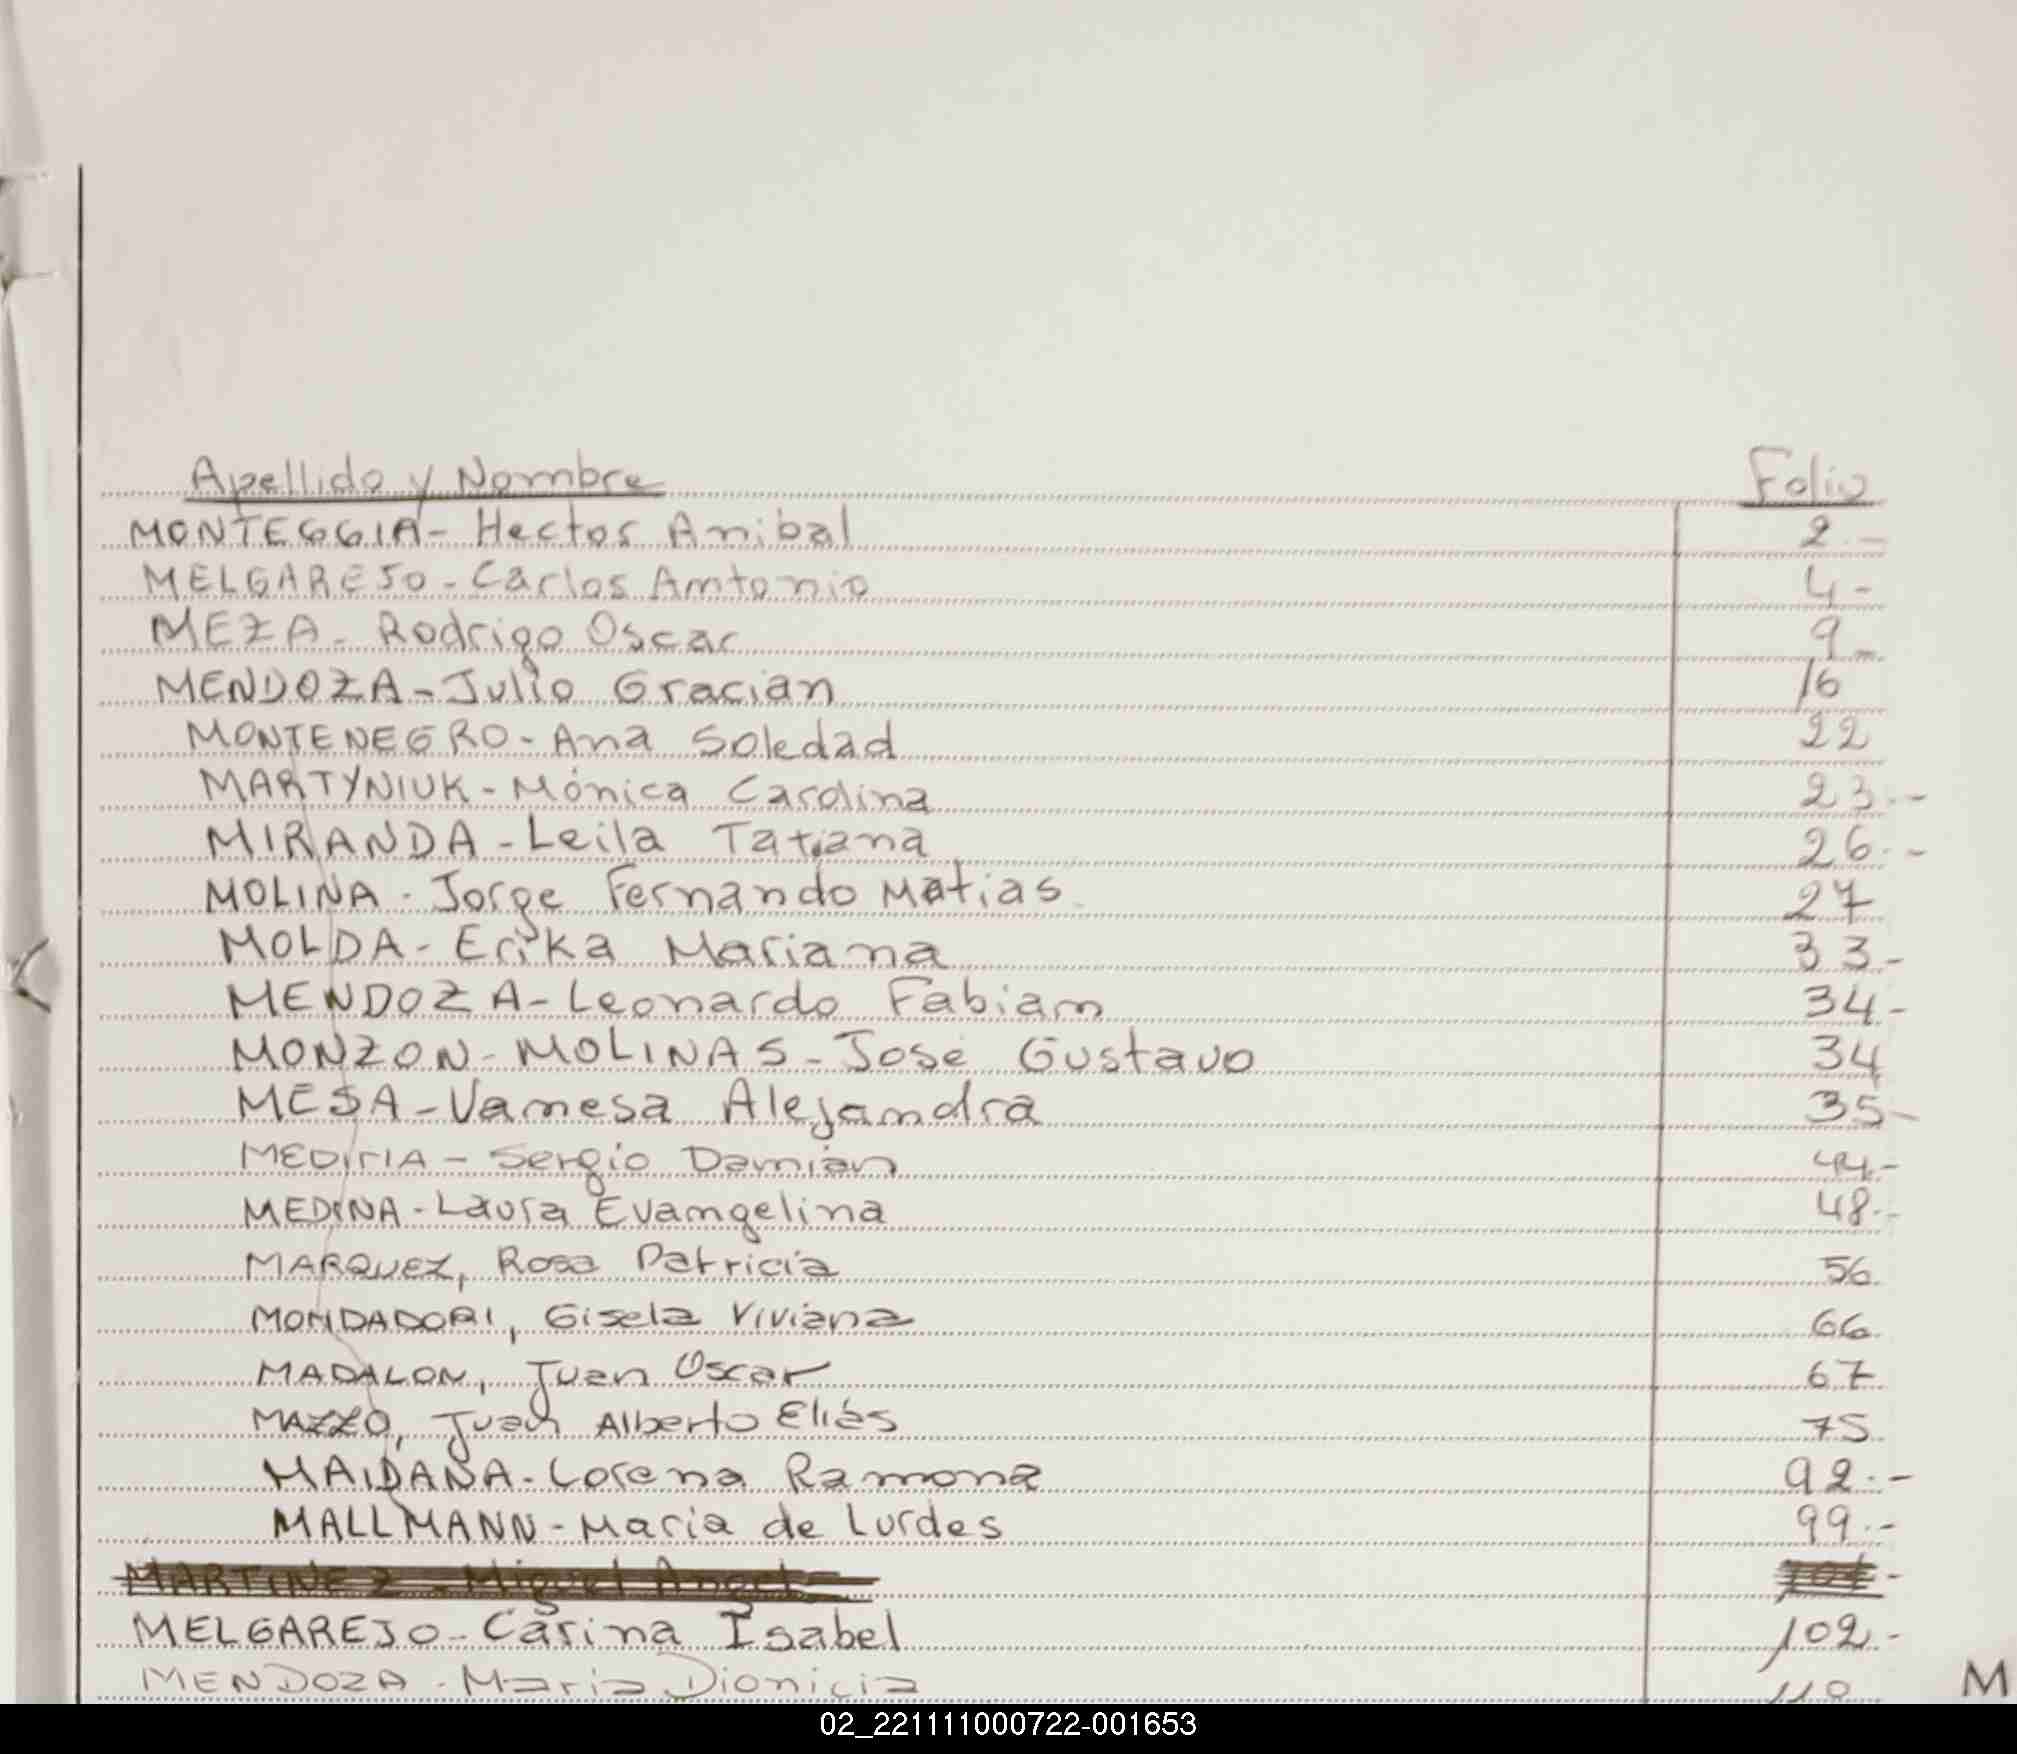 Apellido y Nombre Folio
MONTEGGIA - Hector Anibal 2.-
MELGAREJO - Carlos Antonio 4-
MEZA - Rodrigo Oscar 9-
MENDOZA - Julio Gracian 16
MONTENEGRO - Ana Soledad 22
MARTYNIUK - Mónica Carolina 23.-
MIRANDA - Leila Tatiana 26.-
MOLINA - Jorge Fernando Matias 27
MOLDA - Erika Mariana 33-
MENDOZA - Leonardo Fabian 34-
MONZON - MOLINAS - José Gustavo 34
MESA - Vanesa Alejandra 35-
Sergio Damian 44-
MEDINA - Laura Evangelina 48.-
MARQUEZ, Rosa Patricia 56
MONDADORI, Gisela Viviana 66
MADALON, Juan Oscar 67
MAZZO, Juan Alberto Eliás 75
MAIDANA - Lorena Ramona 92.-
MALLMANN - Maria de Lurdes 99.-
MARTINEZ - Miguel Angel -
MELGAREJO - Carina Isabel 102-
MENDOZA - Maria Dionicia
M
02_221111000722-001653